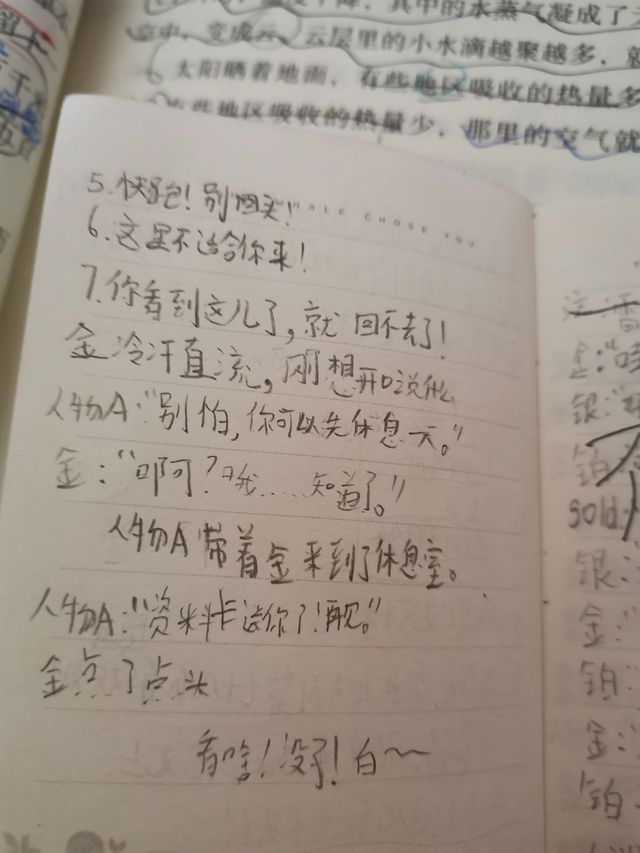 其中的水蒸气凝成了
空中，变成云。云层里的小水滴越聚越多，就
太阳晒着地面，有些地区吸收的热量多
有些地区吸收的热量少，那里的空气就
HALE CHOSE YOU
5.快跑！别回头！
6.这里不适合你来！
7.你看到这儿了，就回不去了！
金冷汗直流，刚想开口说什么
人物A："别怕，你可以先休息一天。"
金："啊啊？哦……知道了。"
人物A带着金来到了休息室。
人物A："资料卡送你了！再见。"
金点了点头
看啥！没了！白～
金："
银："
铂
sold
银：
金："
铂：
金：
铂：